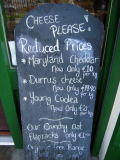 CHEESE
PLEASE.
Reduced Prices
* Maryland Cheddar
Now Only £10
per kg
* Durrus cheese
Now Only
per kg
* Young Coolea
Now Only
per kg
Our Crunchy oat
Flapjacks only
Organic Free Range